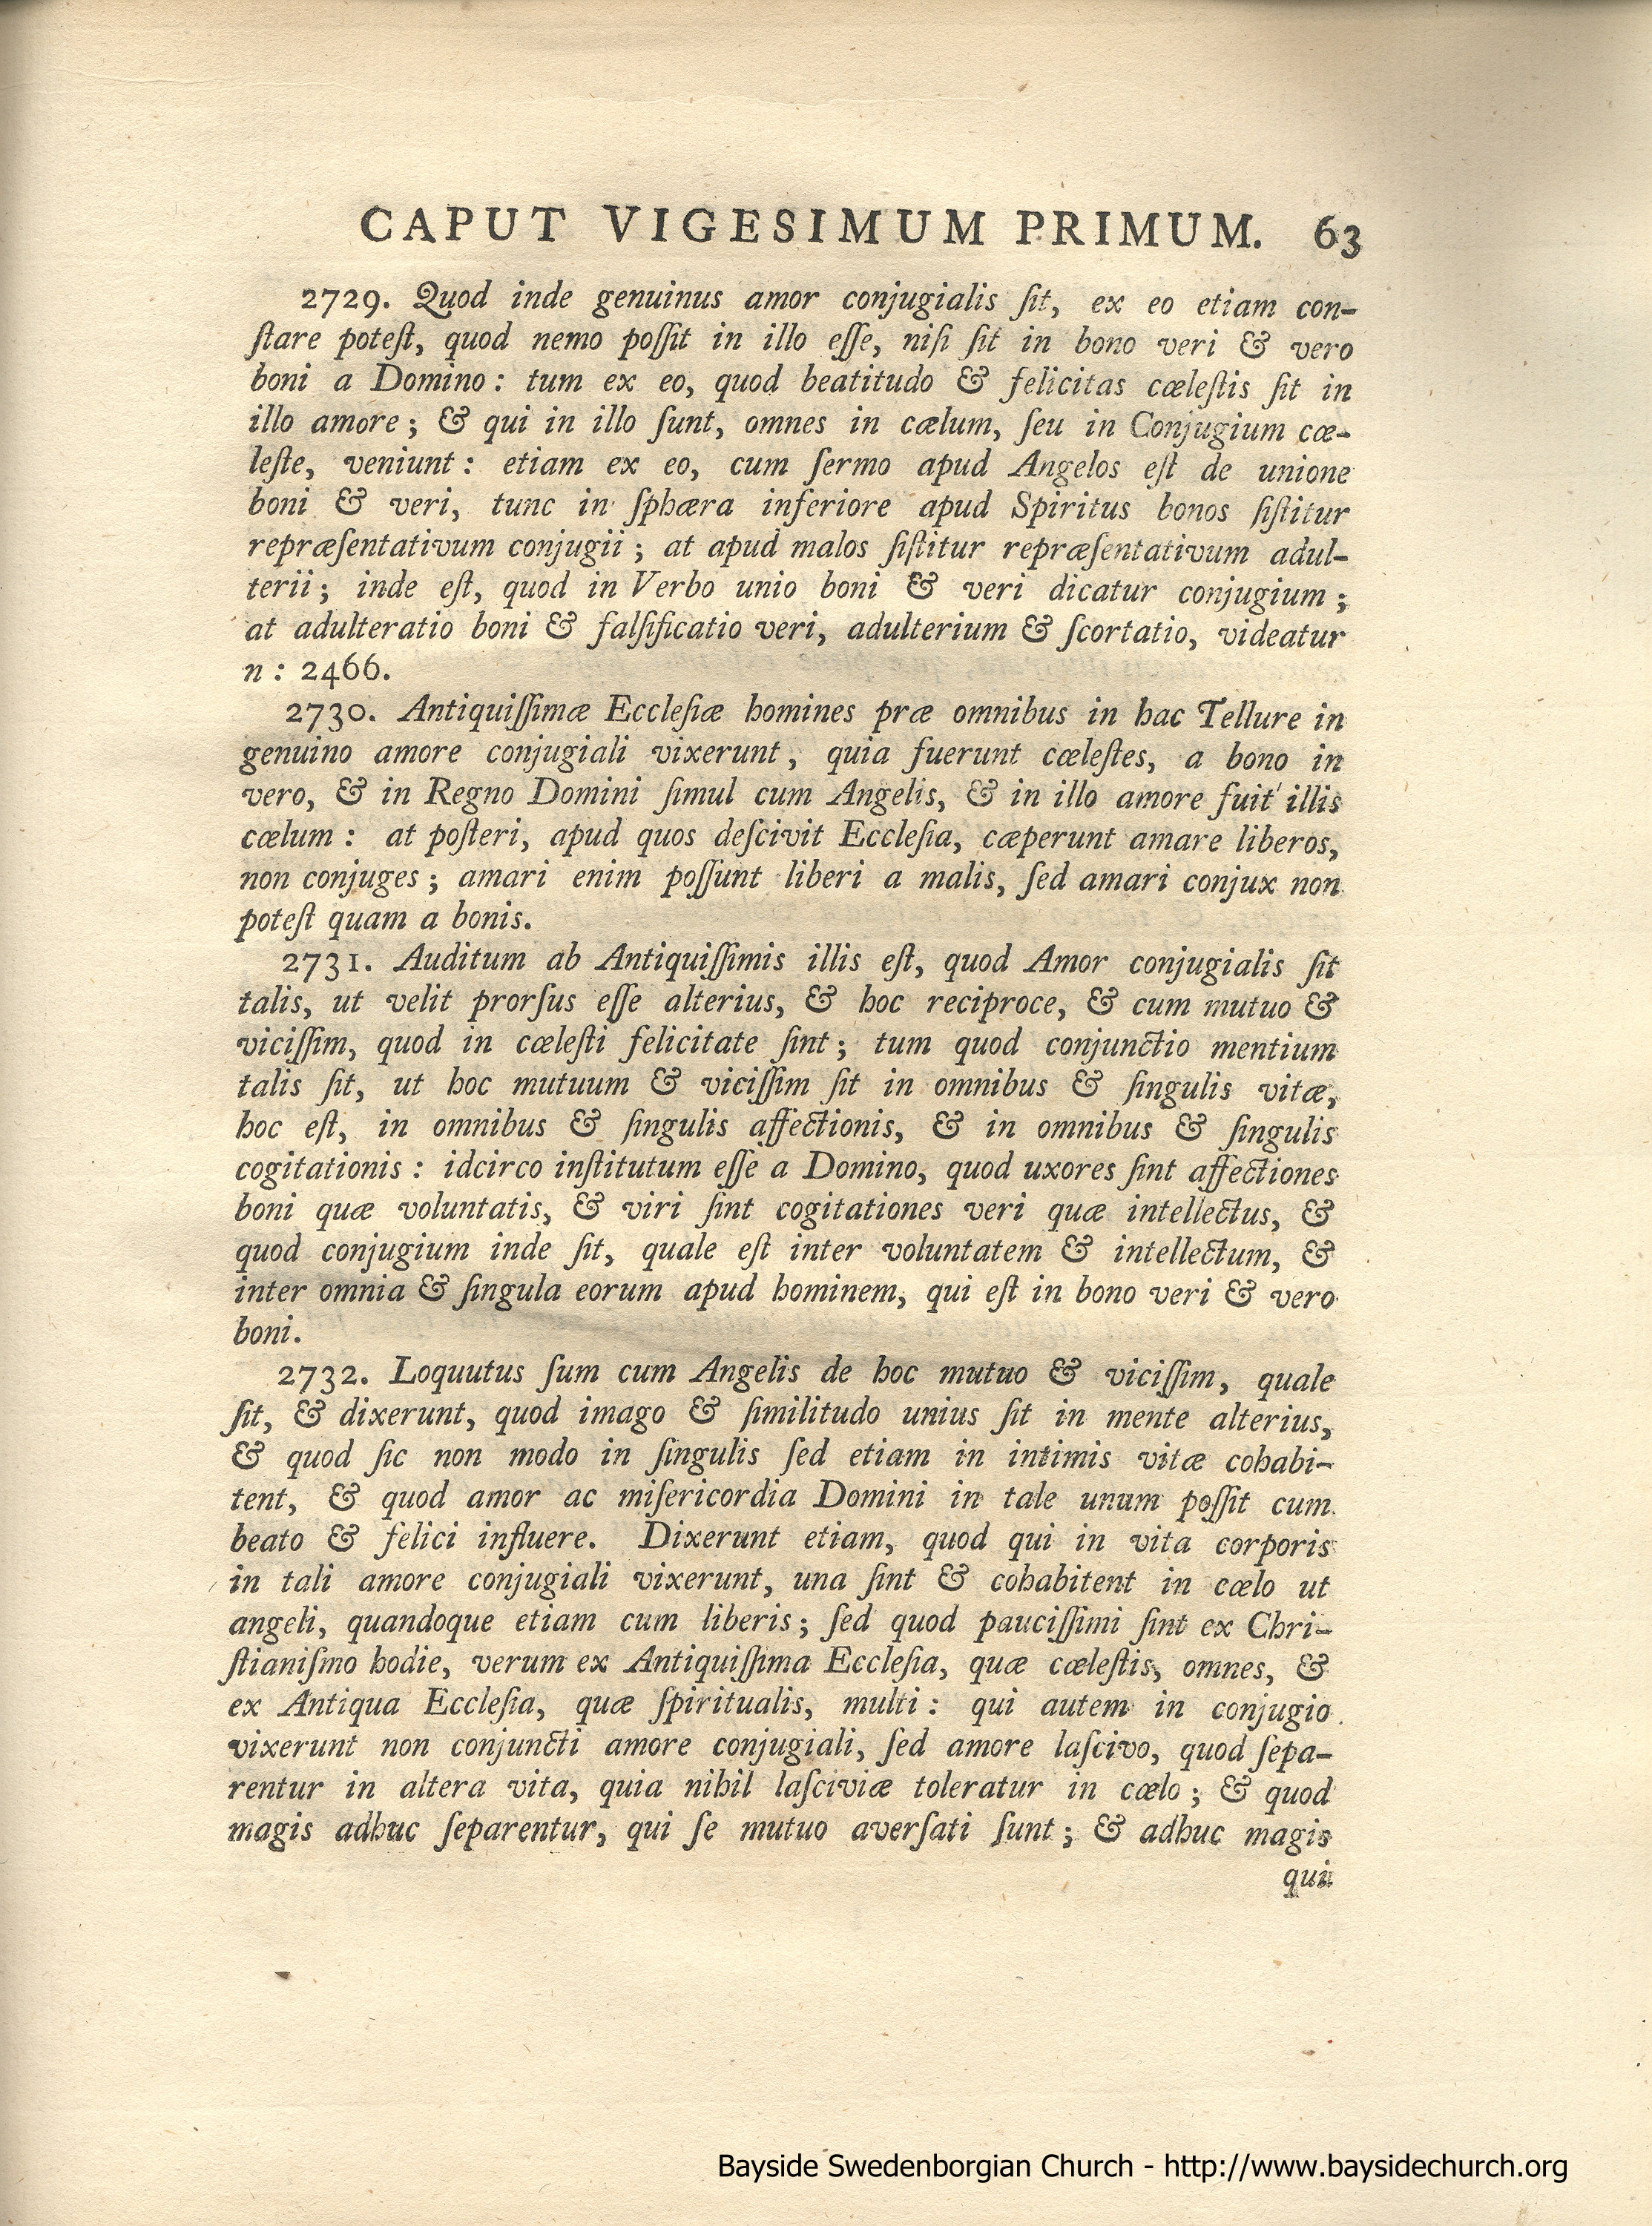 CAPUT VIGESIMUM PRIMUM. 63
2729. Quod inde genuinus amor conjugialis ſit, ex eo etiam con-
ſtare poteſt, quod nemo poſſit in illo eſſe, niſi ſit in bono veri & vero
boni a Domino: tum ex eo, quod beatitudo & felicitas cœleſtis ſit in
illo amore; & qui in illo ſunt, omnes in cælum, ſeu in Conjugium cœ-
leſte, veniunt: etiam ex eo, cum ſermo apud Angelos eſt de unione
boni & veri, tunc in ſphæra inferiore apud Spiritus bonos ſiſtitur
repræſentativum conjugii; at apud malos ſiſtitur repræſentativum adul-
terii; inde eſt, quod in Verbo unio boni & veri dicatur conjugium;
at adulteratio boni & falſificatio veri, adulterium & ſcortatio, videatur
n: 2466.
2730. Antiquiſſimæ Eccleſiæ homines præ omnibus in hac Tellure in
genuino amore conjugiali vixerunt, quia fuerunt cœleſtes, a bono in
vero, & in Regno Domini ſimul cum Angelis, & in illo amore fuit illis
cœlum: at poſteri, apud quos deſcivit Eccleſia, cæperunt amare liberos,
non conjuges; amari enim poſſunt liberi a malis, ſed amari conjux non
poteſt quam a bonis.
2731. Auditum ab Antiquiſſimis illis eſt, quod Amor conjugialis ſit
talis, ut velit prorſus eſſe alterius, & hoc reciproce, & cum mutuo &
viciſſim, quod in cœleſti felicitate ſint; tum quod conjunctio mentium
talis ſit, ut hoc mutuum & viciſſim ſit in omnibus & ſingulis vitæ,
hoc eſt, in omnibus & ſingulis affectionis, & in omnibus & ſingulis
cogitationis: idcirco inſtitutum eſſe a Domino, quod uxores ſint affectiones
boni quæ voluntatis, & viri ſint cogitationes veri quæ intellectus, &
quod conjugium inde ſit, quale eſt inter voluntatem & intellectum, &
inter omnia & ſingula eorum apud hominem, qui eſt in bono veri & vero
boni.
2732. Loquutus ſum cum Angelis de hoc mutuo & viciſſim, quale
ſit, & dixerunt, quod imago & ſimilitudo unius ſit in mente alterius,
& quod ſic non modo in ſingulis ſed etiam in intimis vitæ cohabi-
tent, & quod amor ac miſericordia Domini in tale unum poſſit cum
beato & felici influere. Dixerunt etiam, quod qui in vita corporis
in tali amore conjugiali vixerunt, una ſint & cohabitent in cœlo ut
angeli, quandoque etiam cum liberis; ſed quod pauciſſimi ſint ex Chri-
ſtianiſmo hodie, verum ex Antiquiſſima Eccleſia, quæ cœleſtis, omnes, &
ex Antiqua Eccleſia, quæ ſpiritualis, multi: qui autem in conjugio
vixerunt non conjuncti amore conjugiali, ſed amore laſcivo, quod ſepa-
rentur in altera vita, quia nihil laſciviæ toleratur in cœlo; & quod
magis adhuc ſeparentur, qui ſe mutuo averſati ſunt; & adhuc magis
qui
Bayside Swedenborgian Church - http://www.baysidechurch.org